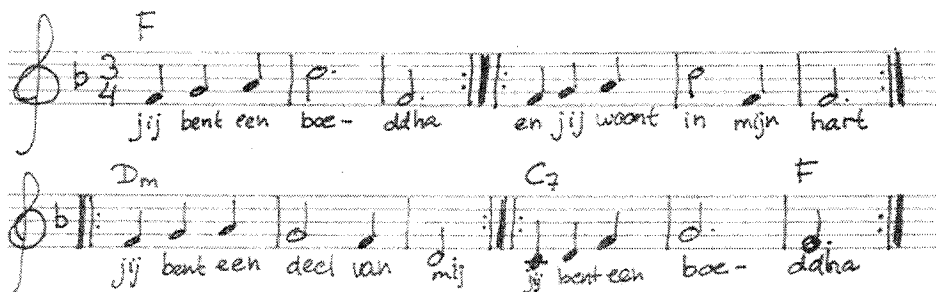 F
3
4
jij bent een boe- ddha en jij woont in mijn hart
Dm C7 F
jij bent een deel van mij jij bent een boe- ddha